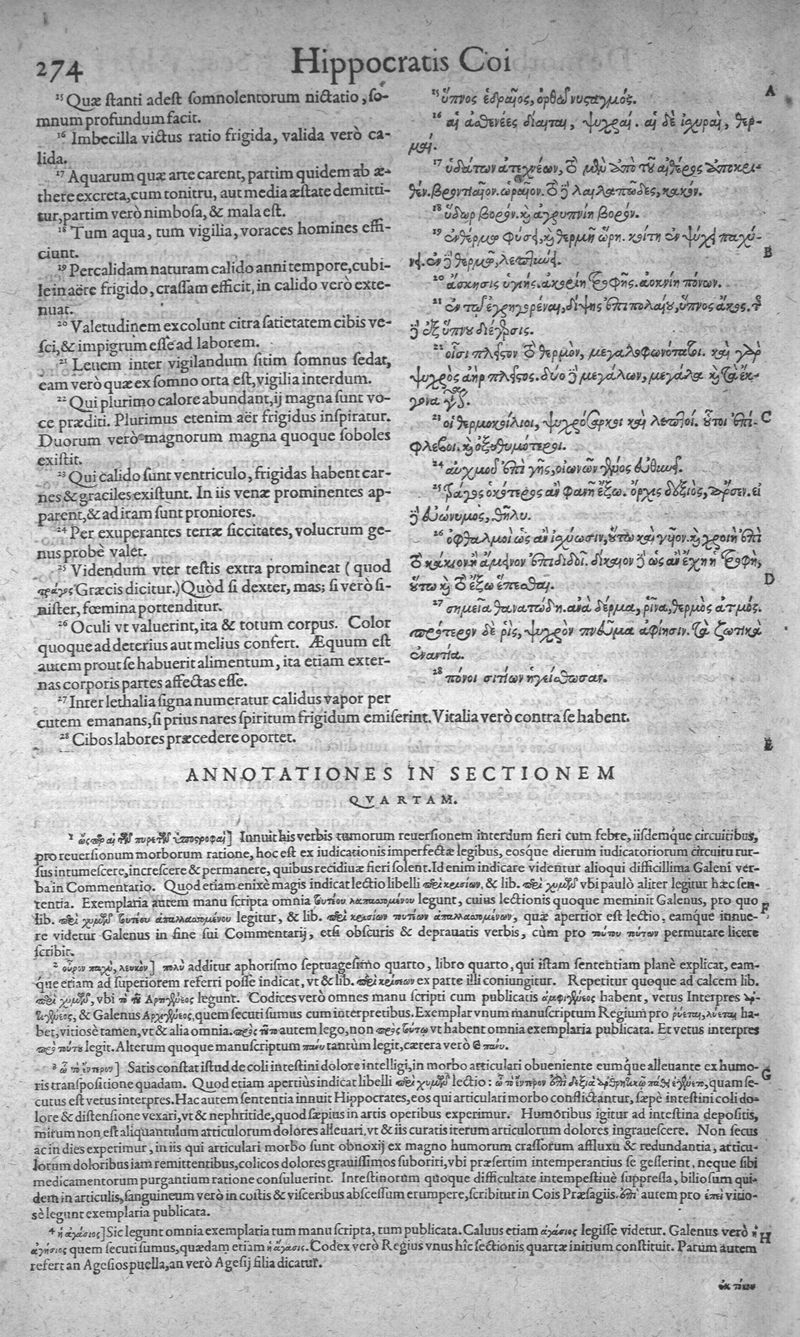 274
Hippocratis Coi
¹⁵ Quæ stanti adest somnolentorum nictatio, so-
mnum profundum facit.
¹⁶ Imbecilla victus ratio frigida, valida verò ca-
lida.
¹⁷ Aquarum quæ arte carent, partim quidem ab æ-
there excreta, cum tonitru, aut media æstate demitti-
tur, partim verò nimbosa, & mala est.
¹⁸ Tum aqua, tum vigilia, voraces homines effi-
ciunt.
¹⁹ Per calidam naturam calido anni tempore, cubi-
le in aëre frigido, crassam efficit, in calido verò exte-
nuat.
²⁰ Valetudinem excolunt citra satietatem cibis ve-
sci, & impigrum esse ad laborem.
²¹ Leuem inter vigilandum sitim somnus sedat,
eam verò quæ ex somno orta est, vigilia interdum.
²² Qui plurimo calore abundant, ij magna sunt vo-
ce præditi. Plurimus etenim aër frigidus inspiratur.
Duorum verò magnorum magna quoque soboles
existit.
²³ Qui calido sunt ventriculo, frigidas habent car-
nes & graciles existunt. In iis venæ prominentes ap-
parent, & ad iram sunt proniores.
²⁴ Per exuperantes terræ siccitates, volucrum ge-
nus probè valet.
²⁵ Videndum vter testis extra promineat (quod
τράγος Græcis dicitur.) Quòd si dexter, mas; si verò si-
nister, fœmina portenditur.
²⁶ Oculi vt valuerint, ita & totum corpus. Color
quoque ad deterius aut melius confert. Æquum est
autem prout se habuerit alimentum, ita etiam exter-
nas corporis partes affectas esse.
²⁷ Inter lethalia signa numeratur calidus vapor per
cutem emanans, si prius nares spiritum frigidum emiserint. Vitalia verò contra se habent.
²⁸ Cibos labores præcedere oportet.
¹⁵ ὕπνος ἑδραῖος, ὀρθῷ νυσταγμός.
¹⁶ αἱ ἀσθενέες δίαιται, ψυχραί. αἱ δὲ ἰσχυραὶ, θερ-
μαί.
¹⁷ ὑδάτων ἀτεχνέων, τὸ μὲν ἀπὸ τοῦ αἰθέρος ἀποκρι-
θὲν. βροντιαῖον. ὡραῖον. τὸ δὲ λαιλαπῶδες, κακόν.
¹⁸ ὕδωρ βορόν. καὶ ἀγρυπνίη βορόν.
¹⁹ ἐν θερμῇ φύσει, καὶ θερμῇ ὥρῃ. κοίτη ἐν ψύχει παχύ-
νει. ἐν δὲ θερμῷ, λεπτύνει.
²⁰ ἄσκησις ὑγιείης. ἀκορίη τροφῆς. ἀοκνίη πόνων.
²¹ ἐν τῷ ἐγρηγορέναι, δίψης ἐπιπολαίου, ὕπνος ἄκος. τῆς
δὲ ἐξ ὕπνου διέγερσις.
²² οἷσι πλεῖστον τὸ θερμὸν, μεγαλοφωνότατοι. καὶ γὰρ
ψυχρὸς ἀὴρ πλεῖστος. δύο δὲ μεγάλων, μεγάλα καὶ τὰ ἔκ-
γονα γίνεται.
²³ οἱ θερμοκοίλιοι, ψυχρόσαρκοι καὶ λεπτοί. οὗτοι ἐπί-
φλεβοι. καὶ ὀξυθυμότεροι.
²⁴ αὐχμοῦ ἐπὶ γῆς, οἰωνῶν γένος εὐθηνεῖ.
²⁵ τράγος ὁκότερος ἂν φανῇ ἔξω. ὄρχις δεξιὸς, ἄρσεν. εἰ
δὲ εὐώνυμος, θῆλυ.
²⁶ ὀφθαλμοὶ ὡς ἂν ἰσχύωσιν, οὕτω καὶ γυῖον. καὶ χροιὴ ἐπὶ
τὸ κάκιον ἢ ἄμεινον ἐπιδιδοῖ. δίκαιον δὲ ὡς ἂν ἔχῃ ἡ τροφὴ,
οὕτω καὶ τὸ ἔξω ἕπεσθαι.
²⁷ σημεῖα θανατώδη. ἀνὰ δέρμα, ῥῖνα, θερμὸς ἀτμός.
πρότερον δὲ ῥὶς, ψυχρὸν πνεῦμα ἀφίησιν. τὰ ζωτικὰ
ἐναντία.
²⁸ πόνοι σιτίων ἡγείσθωσαν.
A
B
C
D
E
ANNOTATIONES IN SECTIONEM
QVARTAM.
Innuit his verbis tumorum reuersionem interdum fieri cum febre, iisdemque circuitibus,
pro reuersionum morborum ratione, hoc est ex iudicationis imperfectæ legibus, eosque dierum iudicatoriorum circuitu rur-
sus intumescere, increscere & permanere, quibus recidiuæ fieri solent. Id enim indicare videntur alioqui difficillima Galeni ver-
ba in Commentario. Quod etiam enixè magis indicat lectio libelli περὶ κρισίων, & lib. περὶ χυμῶν vbi paulò aliter legitur hæc sen-
tentia. Exemplaria autem manu scripta omnia legunt, cuius lectionis quoque meminit Galenus, pro quo
lib. περὶ χυμῶν legitur, & lib. περὶ κρισίων quæ apertior est lectio, eamque innue-
re videtur Galenus in fine sui Commentarij, etsi obscuris & deprauatis verbis, cùm pro τούτου τούτων permutare licere
scribit.
² οὖρον παχὺ, λευκὸν] πολὺ additur aphorismo septuagesimo quarto, libro quarto, qui istam sententiam planè explicat, eam-
que etiam ad superiorem referri posse indicat, vt & lib. περὶ κρισίων ex parte illi coniungitur. Repetitur quoque ad calcem lib.
περὶ χυμῶν, vbi legunt. Codices verò omnes manu scripti cum publicatis habent, vetus Interpres
& Galenus quem secuti sumus cum interpretibus. Exemplar vnum manuscriptum Regium pro ha-
bet, vitiosè tamen, vt & alia omnia. autem lego, non vt habent omnia exemplaria publicata. Et vetus interpres
legit. Alterum quoque manuscriptum tantùm legit, cætera verò
Satis constat istud de coli intestini dolore intelligi, in morbo articulari obueniente eumque alleuante ex humo-
ris transpositione quadam. Quod etiam apertiùs indicat libelli περὶ χυμῶν lectio: quam se-
cutus est vetus interpres. Hac autem sententia innuit Hippocrates, eos qui articulari morbo conflictantur, sæpè intestini coli do-
lore & distensione vexari, vt & nephritide, quod sæpius in artis operibus experimur. Humoribus igitur ad intestina depositis,
mirum non est aliquantulum articulorum dolores alleuari, vt & iis curatis iterum articulorum dolores ingrauescere. Non secus
ac in dies experimur, in iis qui articulari morbo sunt obnoxij ex magno humorum crassorum affluxu & redundantia, articu-
lorum doloribus iam remittentibus, colicos dolores grauissimos suboriri, vbi præsertim intemperantius se gesserint, neque sibi
medicamentorum purgantium ratione consuluerint. Intestinorum quoque difficultate intempestiuè suppressa, biliosum qui-
dem in articulis, sanguineum verò in costis & visceribus abscessum erumpere, scribitur in Cois Præsagiis. autem pro vitio-
sè legunt exemplaria publicata.
⁴ ἡ ἀγάσιος] Sic legunt omnia exemplaria tum manu scripta, tum publicata. Caluus etiam ἀγάσιος legisse videtur. Galenus verò ἡ
ἀγήσιος quem secuti sumus, quædam etiam ἡ ἀγασις. Codex verò Regius vnus hîc sectionis quartæ initium constituit. Parum autem
refert an Agesios puella, an verò Agesij filia dicatur.
F
G
H